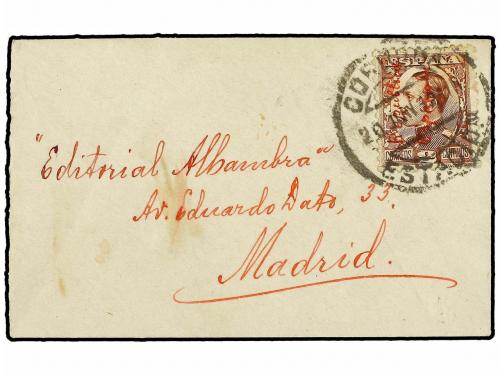 ESPAÑA
"Editorial Alhambra"
Av. Eduardo Dato, 33.
Madrid.